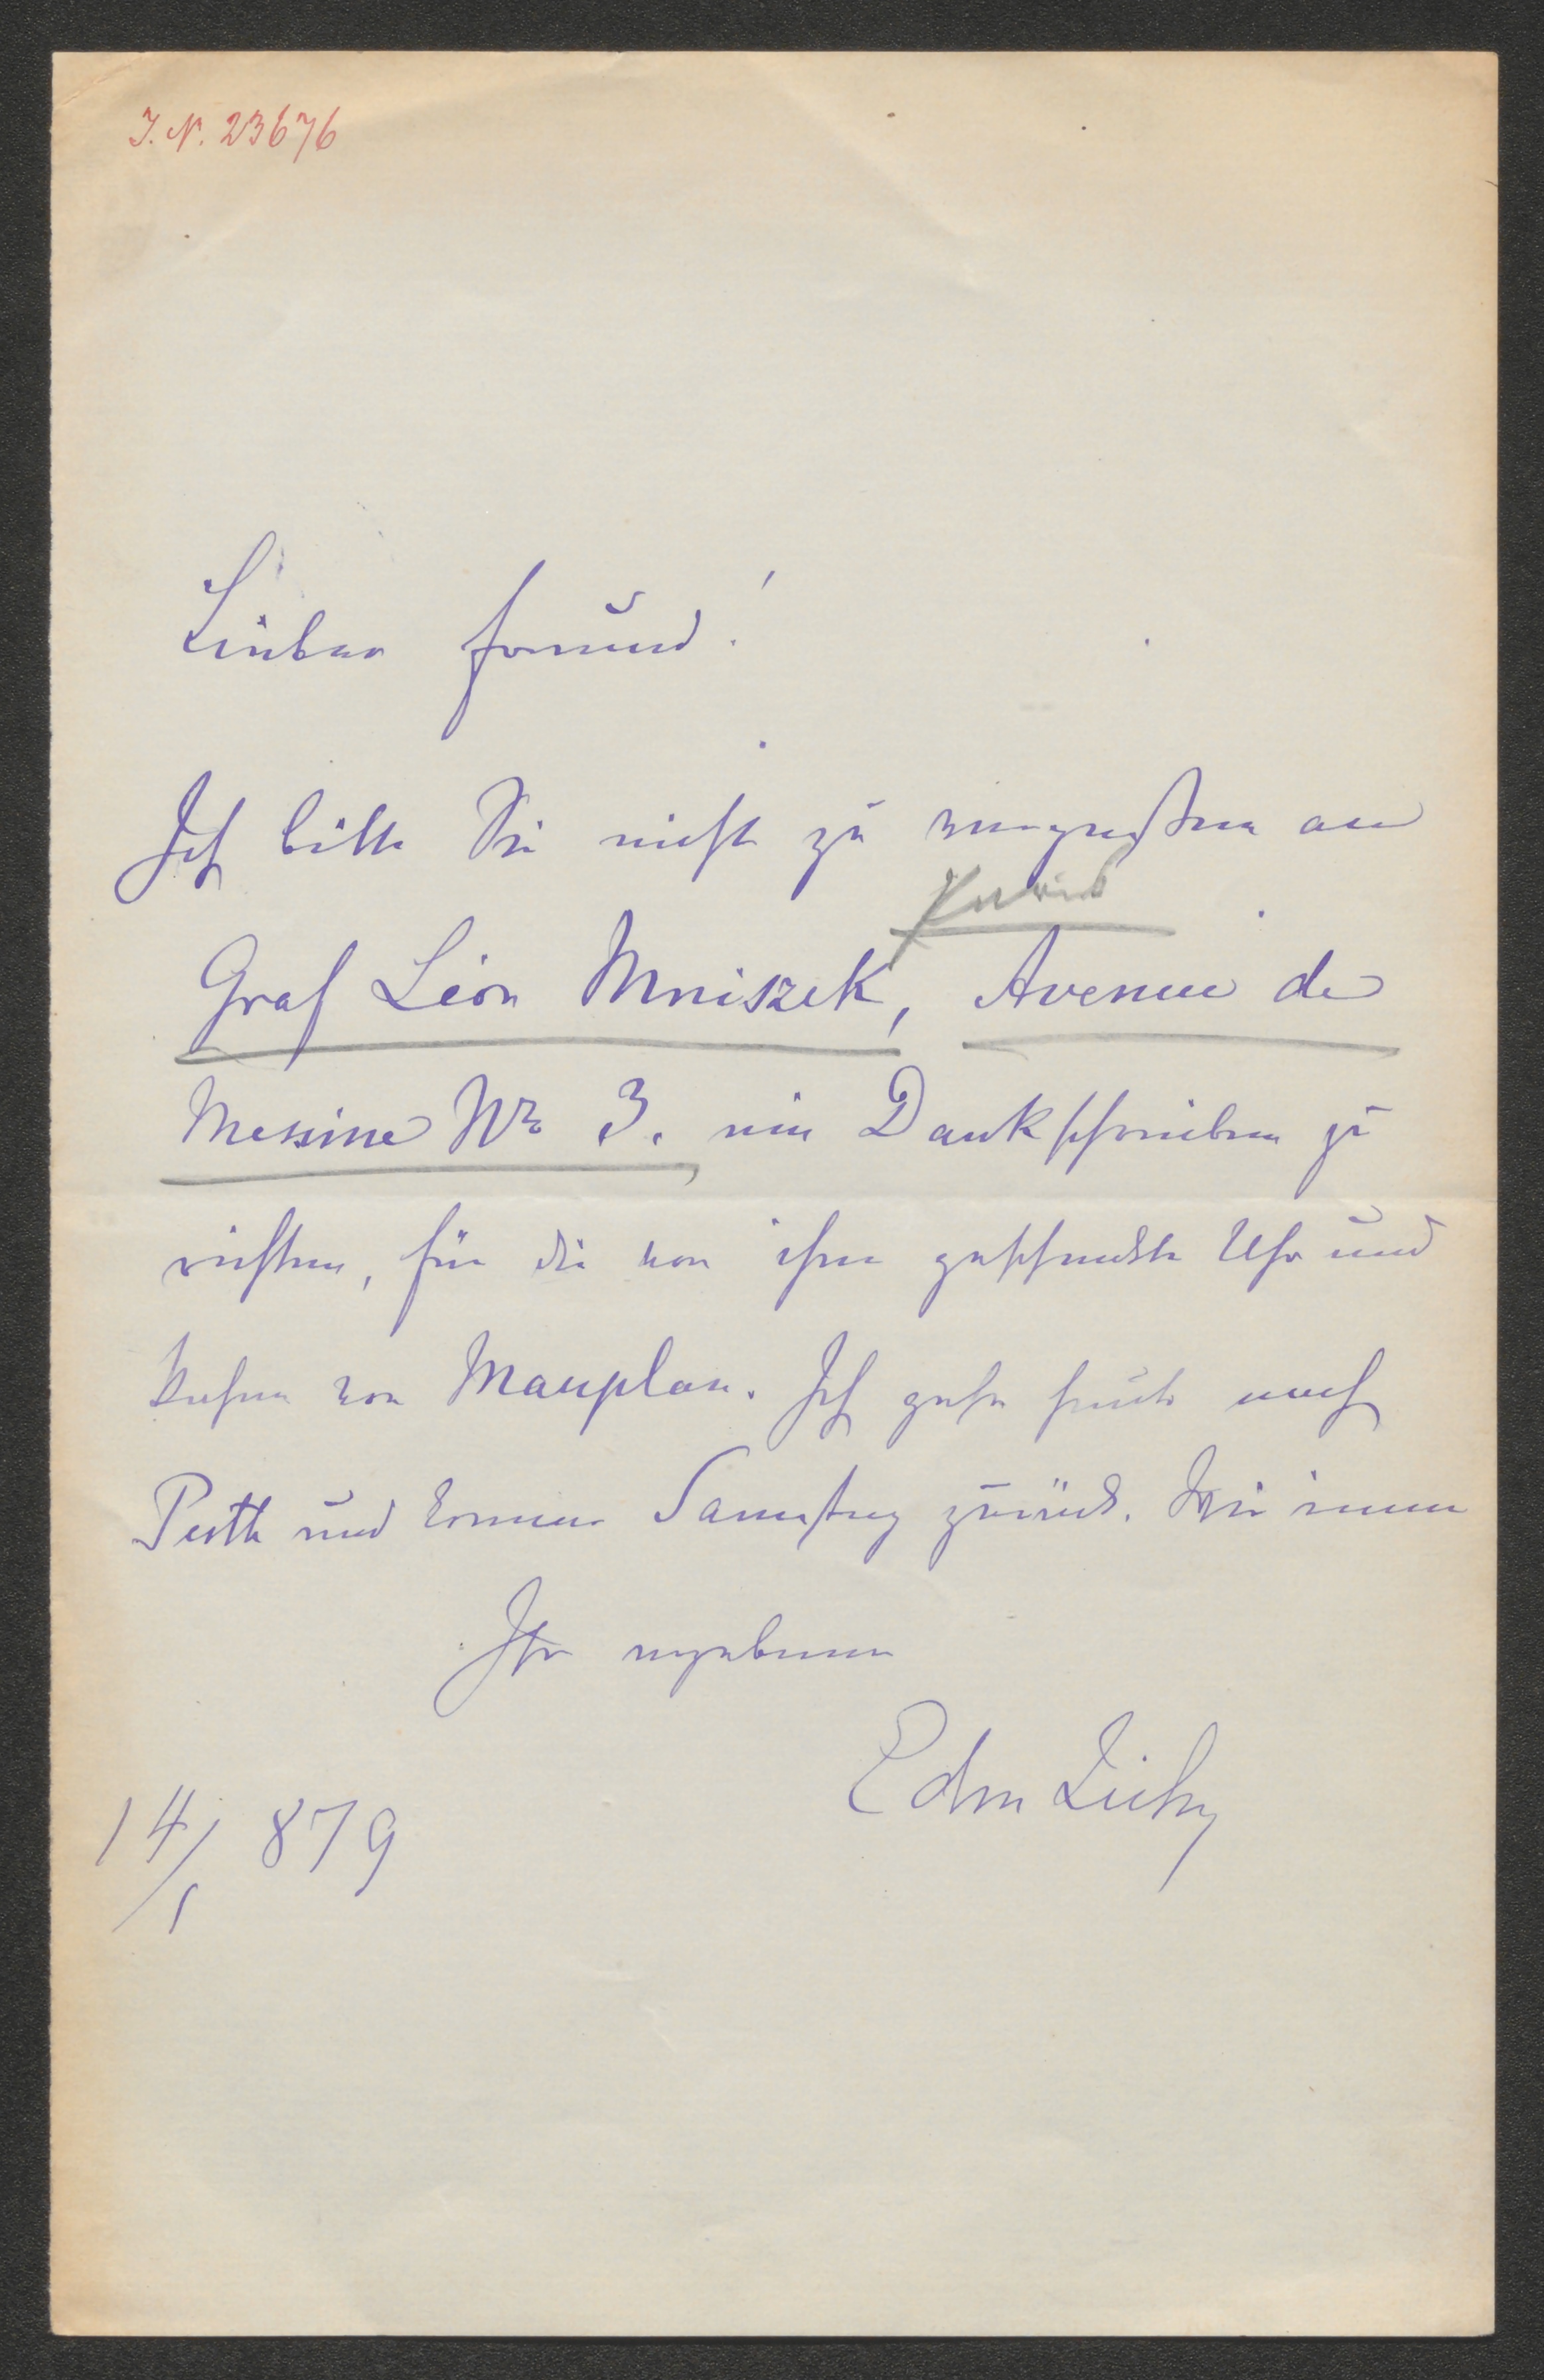 I. N. 23676
Lieber Freund!
Ich bitte Sie nicht zu vergessen an
Paris
Graf Léon Mniszek, Avenue de
Messine No 3. ein Dankschreiben zu
richten, für die von ihm geschenkte Uhr und
von Mauplan. Ich gehe heute nach
Pesth und komme Samstag zurück. Wie immer
Ihr ergebener
Edm Zichy
14/1 879